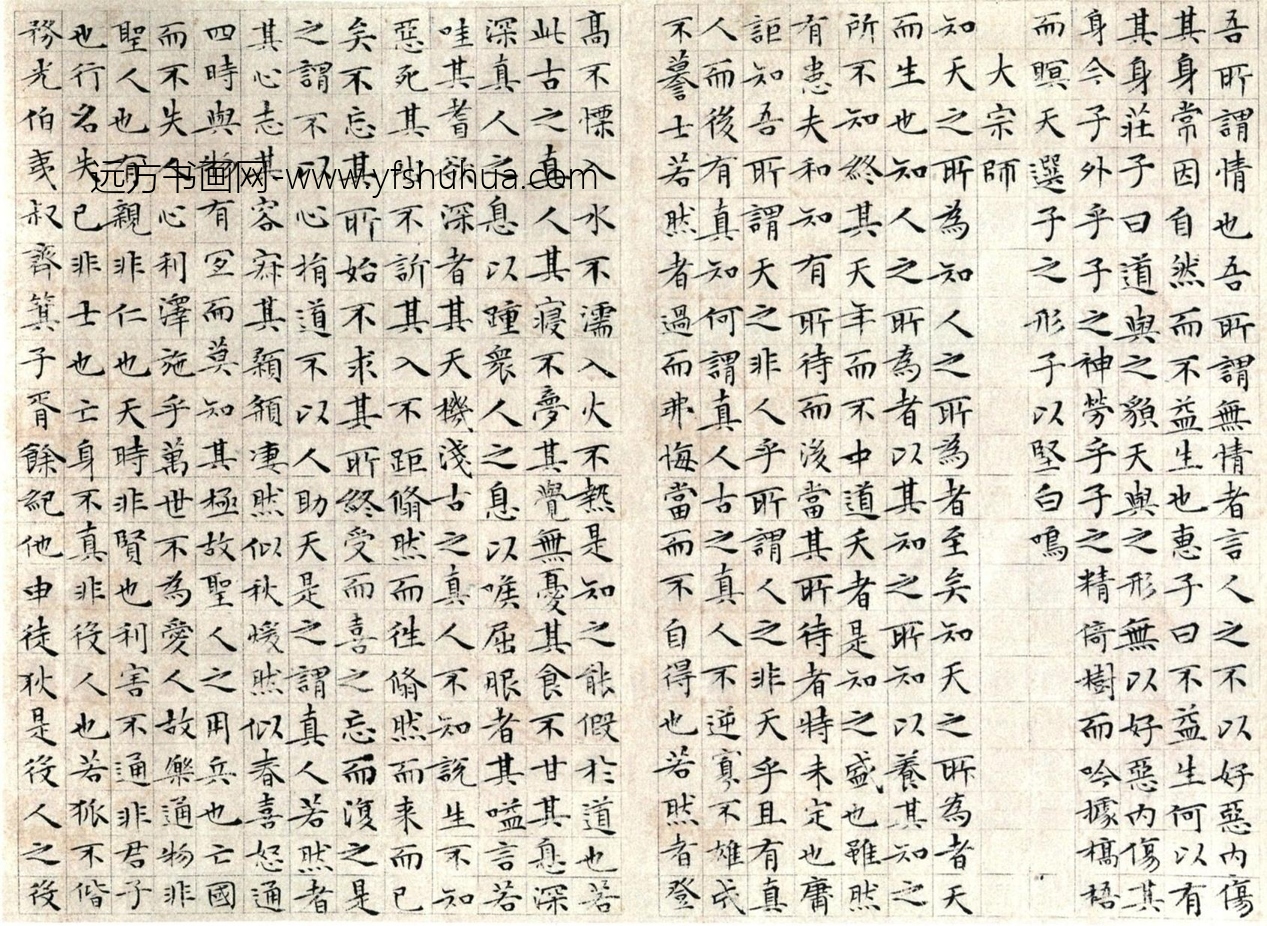 吾所謂情也吾所謂無情者言人之不以好惡內傷
其身常因自然而不益生也惠子曰不益生何以有
其身莊子曰道與之貌天與之形無以好惡內傷其
身今子外乎子之神勞乎子之精倚樹而吟據槁梧
而瞑天選子之形子以堅白鳴
大宗師
知天之所為知人之所為者至矣知天之所為者天
而生也知人之所為者以其知之所知以養其知之
所不知終其天年而不中道夭者是知之盛也雖然
有患夫和知有所待而後當其所待者特未定也庸
詎知吾所謂天之非人乎所謂人之非天乎且有真
人而後有真知何謂真人古之真人不逆寡不雄成
不謩士若然者過而弗悔當而不自得也若然者登
高不慄入水不濡入火不熱是知之能假於道也若
此古之真人其寢不夢其覺無憂其食不甘其息深
深真人之息以踵衆人之息以喉屈服者其嗌言若
哇其耆欲深者其天機淺古之真人不知說生不知
惡死其出不訢其入不距翛然而往翛然而来而已
矣不忘其所始不求其所終受而喜之忘而復之是
之謂不以心捐道不以人助天是之謂真人若然者
其心志其容寂其顙頯凄然似秋煖然似春喜怒通
四時與物有宜而莫知其極故聖人之用兵也亡國
而不失人心利澤施乎萬世不為愛人故樂通物非
聖人也有親非仁也天時非賢也利害不通非君子
也行名失己非士也亡身不真非役人也若狐不偕
務光伯夷叔齊箕子胥餘紀他申徒狄是役人之役
远方书画网-www.yfshuhua.com